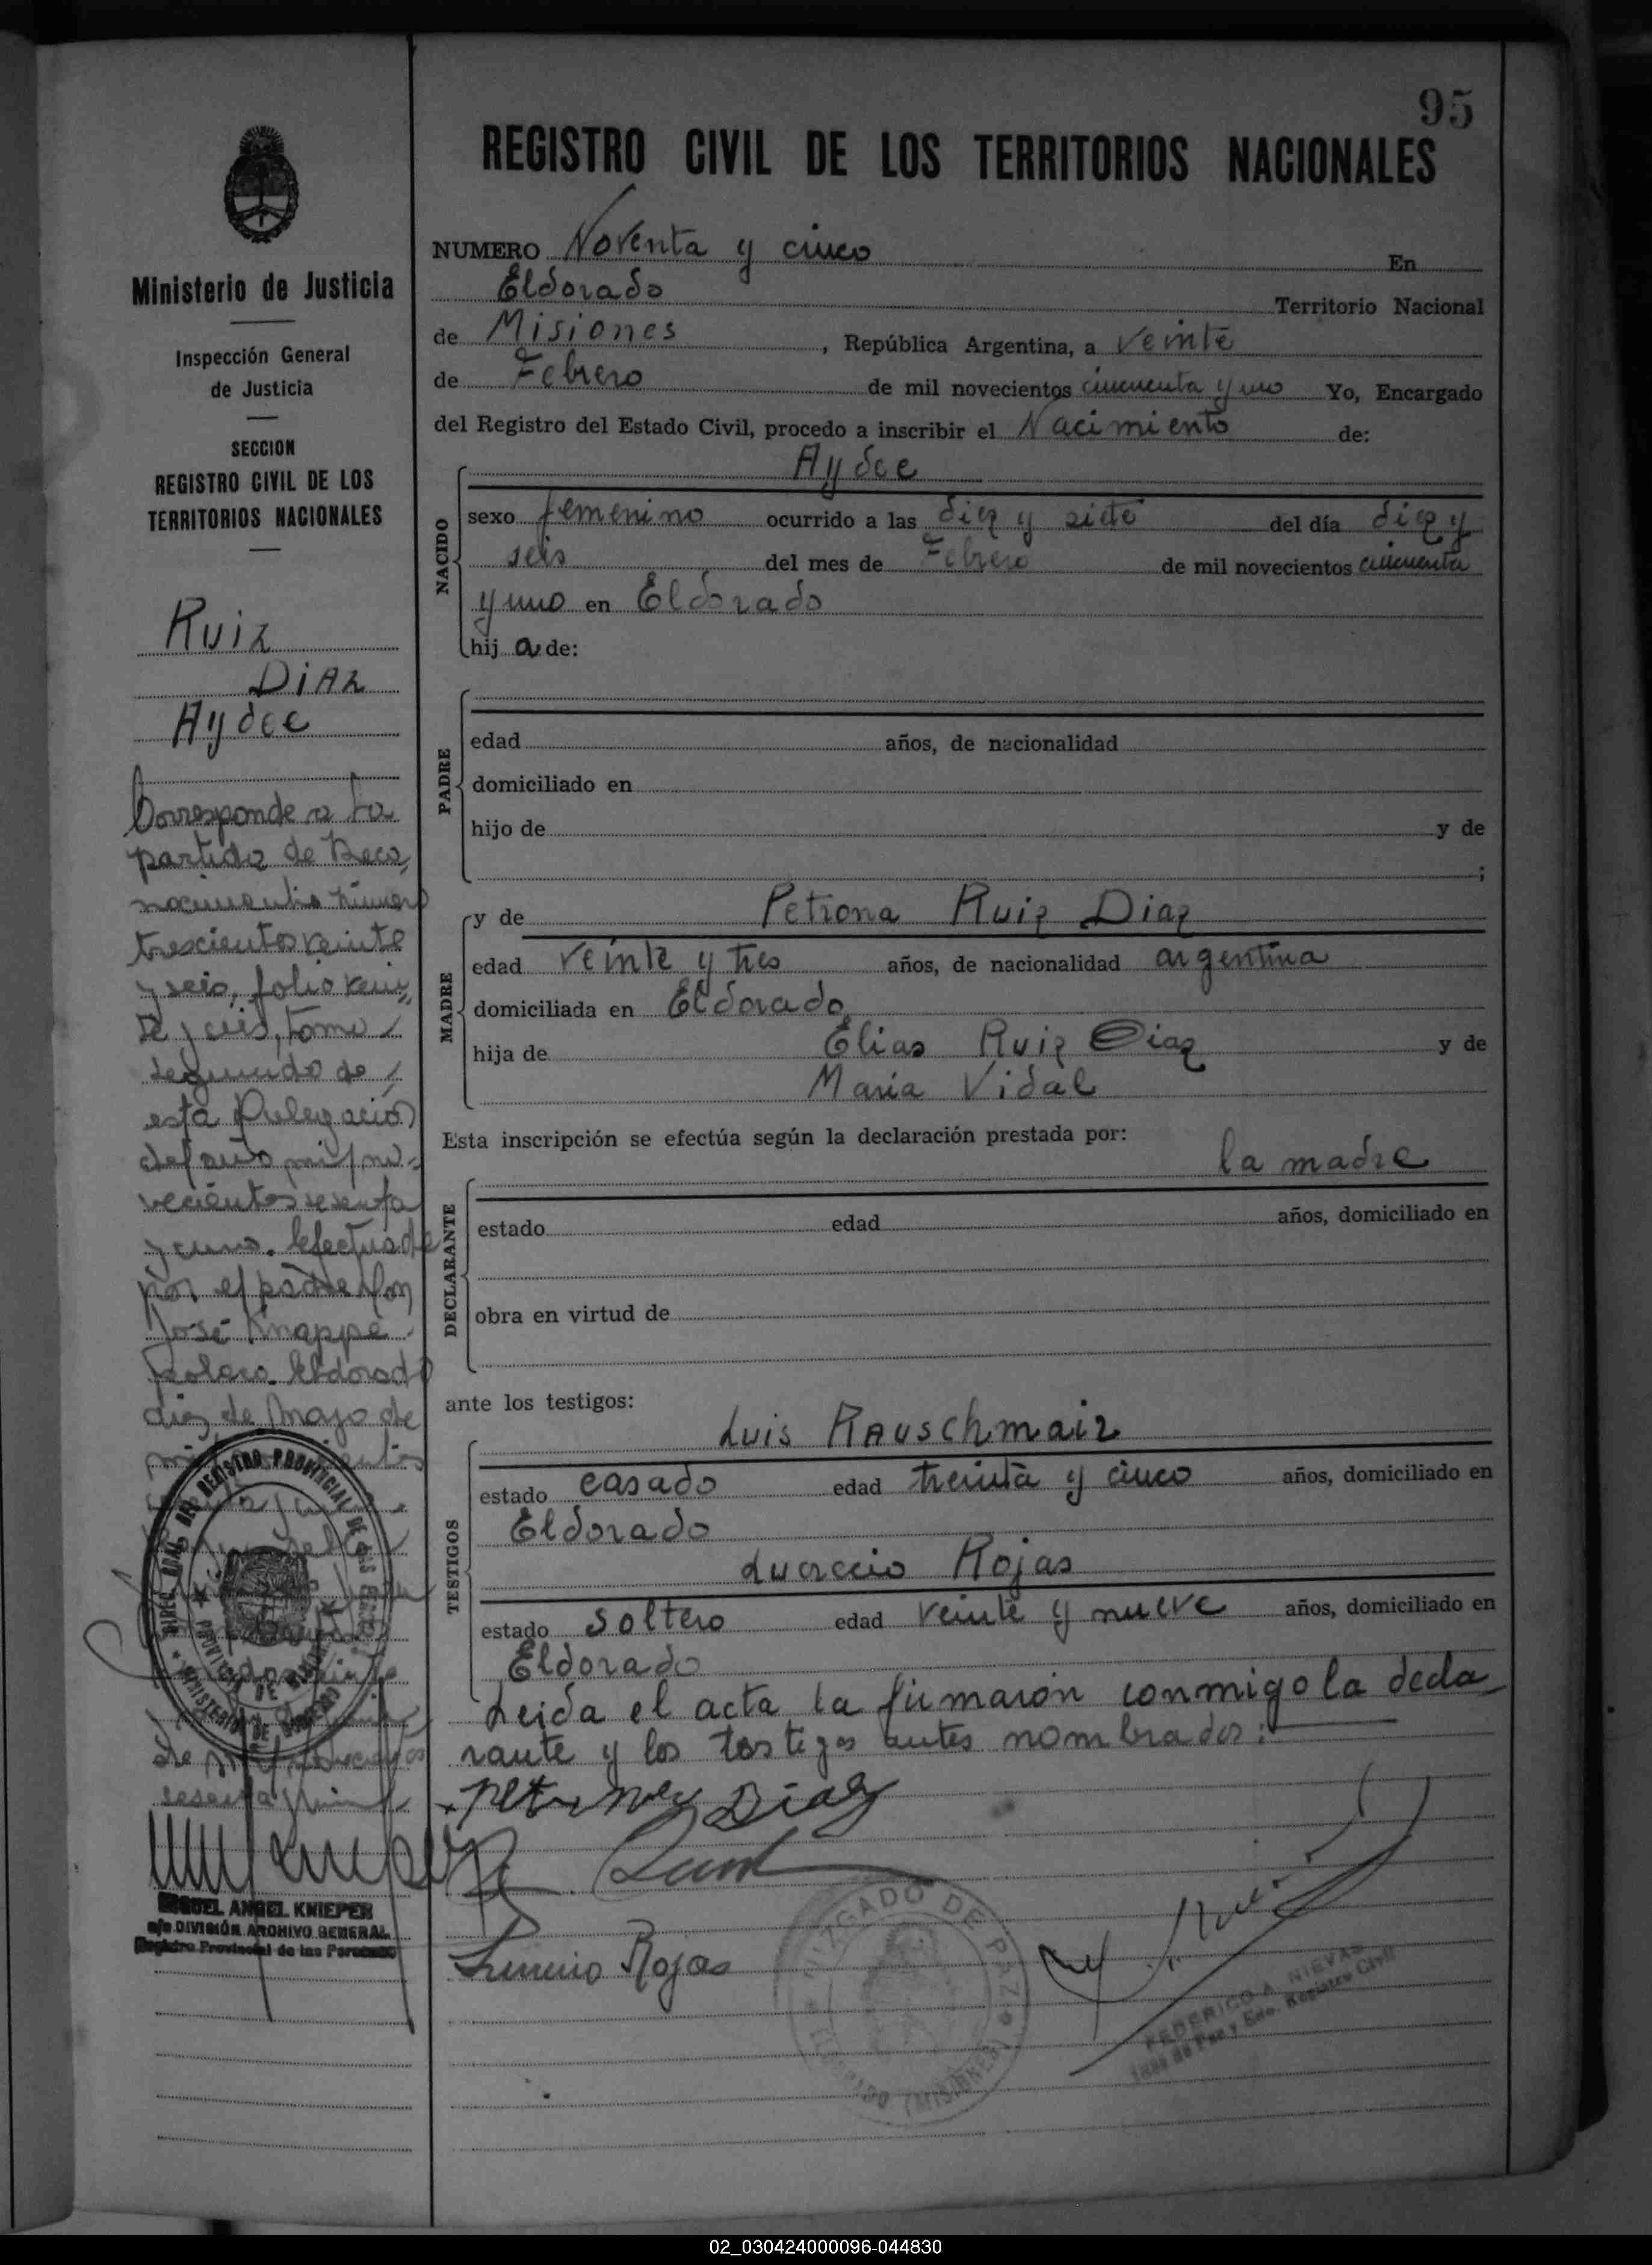 95
REGISTRO CIVIL DE LOS TERRITORIOS NACIONALES
Ministerio de Justicia
Inspección General
de Justicia
SECCION
REGISTRO CIVIL DE LOS
TERRITORIOS NACIONALES
Ruiz
Diaz
Aydee
Corresponde a la
partida de Reco,
nocimiento número
trescientos veinte
y seis, folio vein,
te y seis, tomo
segundo de
esta Delegación
del año mil no-
vecientos sesenta
y uno. Efectuada
por el padre Don
José Knappe
soltero. Eldorado
diez de Mayo de
DEL REGISTRO PROVINCIAL DE LAS
MINISTERIO DE
PROVINCIA DE
sesenta y
MIGUEL ANGEL KNIEPER
a/c DIVISIÓN ARCHIVO GENERAL
Registro Provincial de las Personas
NUMERO Noventa y cinco En
Eldorado Territorio Nacional
de Misiones, República Argentina, a veinte
de Febrero de mil novecientos cincuenta y uno Yo, Encargado
del Registro del Estado Civil, procedo a inscribir el Nacimiento de:
NACIDO
Aydee
sexo femenino ocurrido a las diez y siete del día diez y
seis del mes de Febrero de mil novecientos cincuenta
y uno en Eldorado
hij a de:
PADRE
edad años, de nacionalidad
domiciliado en
hijo de y de
;
MADRE
y de Petrona Ruiz Diaz
edad veinte y tres años, de nacionalidad argentina
domiciliada en Eldorado
hija de Elias Ruiz Diaz y de
Maria Vidal
Esta inscripción se efectúa según la declaración prestada por:
la madre
DECLARANTE
estado edad años, domiciliado en
obra en virtud de
ante los testigos:
TESTIGOS
Luis Rauschmair
estado casado edad treinta y cinco años, domiciliado en
Eldorado
Lucrecio Rojas
estado soltero edad veinte y nueve años, domiciliado en
Eldorado
Leida el acta la firmaron conmigo la decla
rante y los testigos antes nombrados:
Diaz
Rojas
JUZGADO DE PAZ
ELDORADO (MISIONES)
FEDERICO A. NIEVAS
Juez de Paz y Enc. Registro Civil
02_030424000096-044830